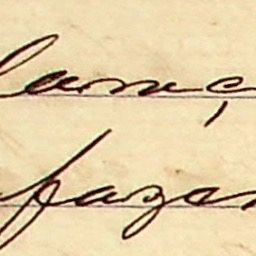 lanç
fazen